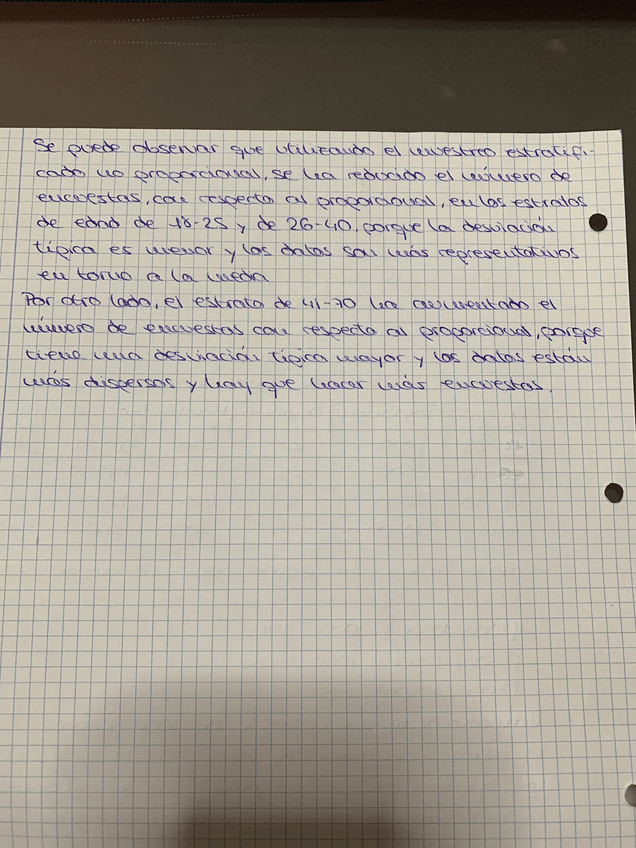 Se puede observar que utilizando el muestreo estratifi-
cado no proporcional, se ha reducido el número de
encuestas, con respecto al proporcional, en los estratos
de edad de 18-25 y de 26-40, porque la desviación
típica es menor y los datos son más representativos
en torno a la media
Por otro lado, el estrato de 41-70 ha aumentado el
número de encuestas con respecto al proporcional, porque
tiene una desviación típica mayor y los datos están
más dispersos y hay que hacer más encuestas.